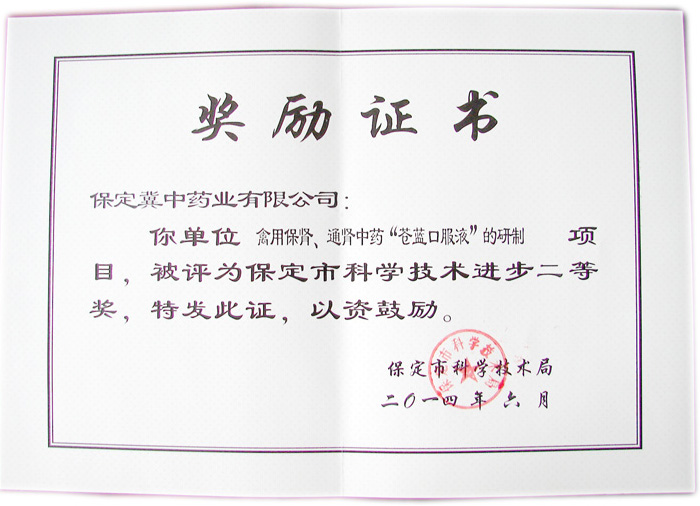 奖励证书
保定冀中药业有限公司：
你单位 禽用保肾、通肾中药“苍蓝口服液”的研制 项
目，被评为保定市科学技术进步二等
奖，特发此证，以资鼓励。
保定市科学技术局
保定市科学技术局
二〇一四年 六月